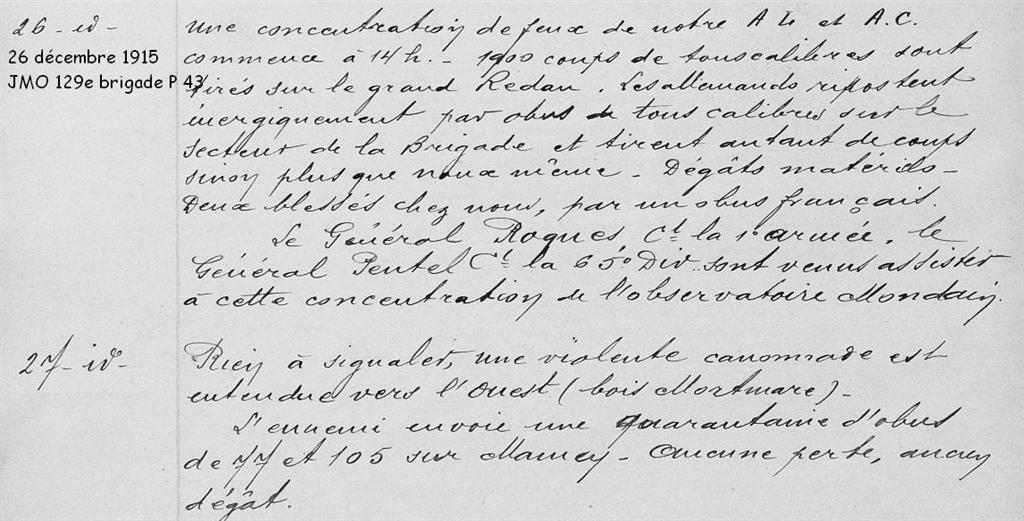 26 - id -
26 décembre 1915
JMO 129e brigade P 43
une concentration de feux de notre A L et A.C.
commence à 14h. - 1900 coups de tous calibres sont
tirés sur le grand Redan. Les allemands ripostent
énergiquement par obus de tous calibres sur le
secteur de la Brigade et tirent autant de coups
sinon plus que nous même - Dégâts matériels -
Deux blessés chez nous, par un obus français.
Le Général Roques, Ct la 1e armée, le
Général Pentel Ct la 65e Div. sont venus assister
à cette concentration de l'observatoire Mondain.
27 - id -
Rien à signaler, une violente canonnade est
entendue vers l'Ouest (bois Mortmare) -
L'ennemi envoie une quarantaine d'obus
de 77 et 105 sur Mamey - Aucune perte, aucun
dégât.